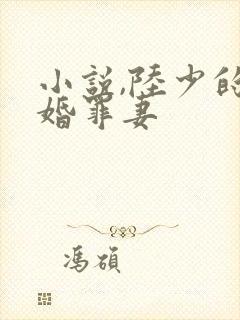 小説,陸少的
婚罪妻
馮碩